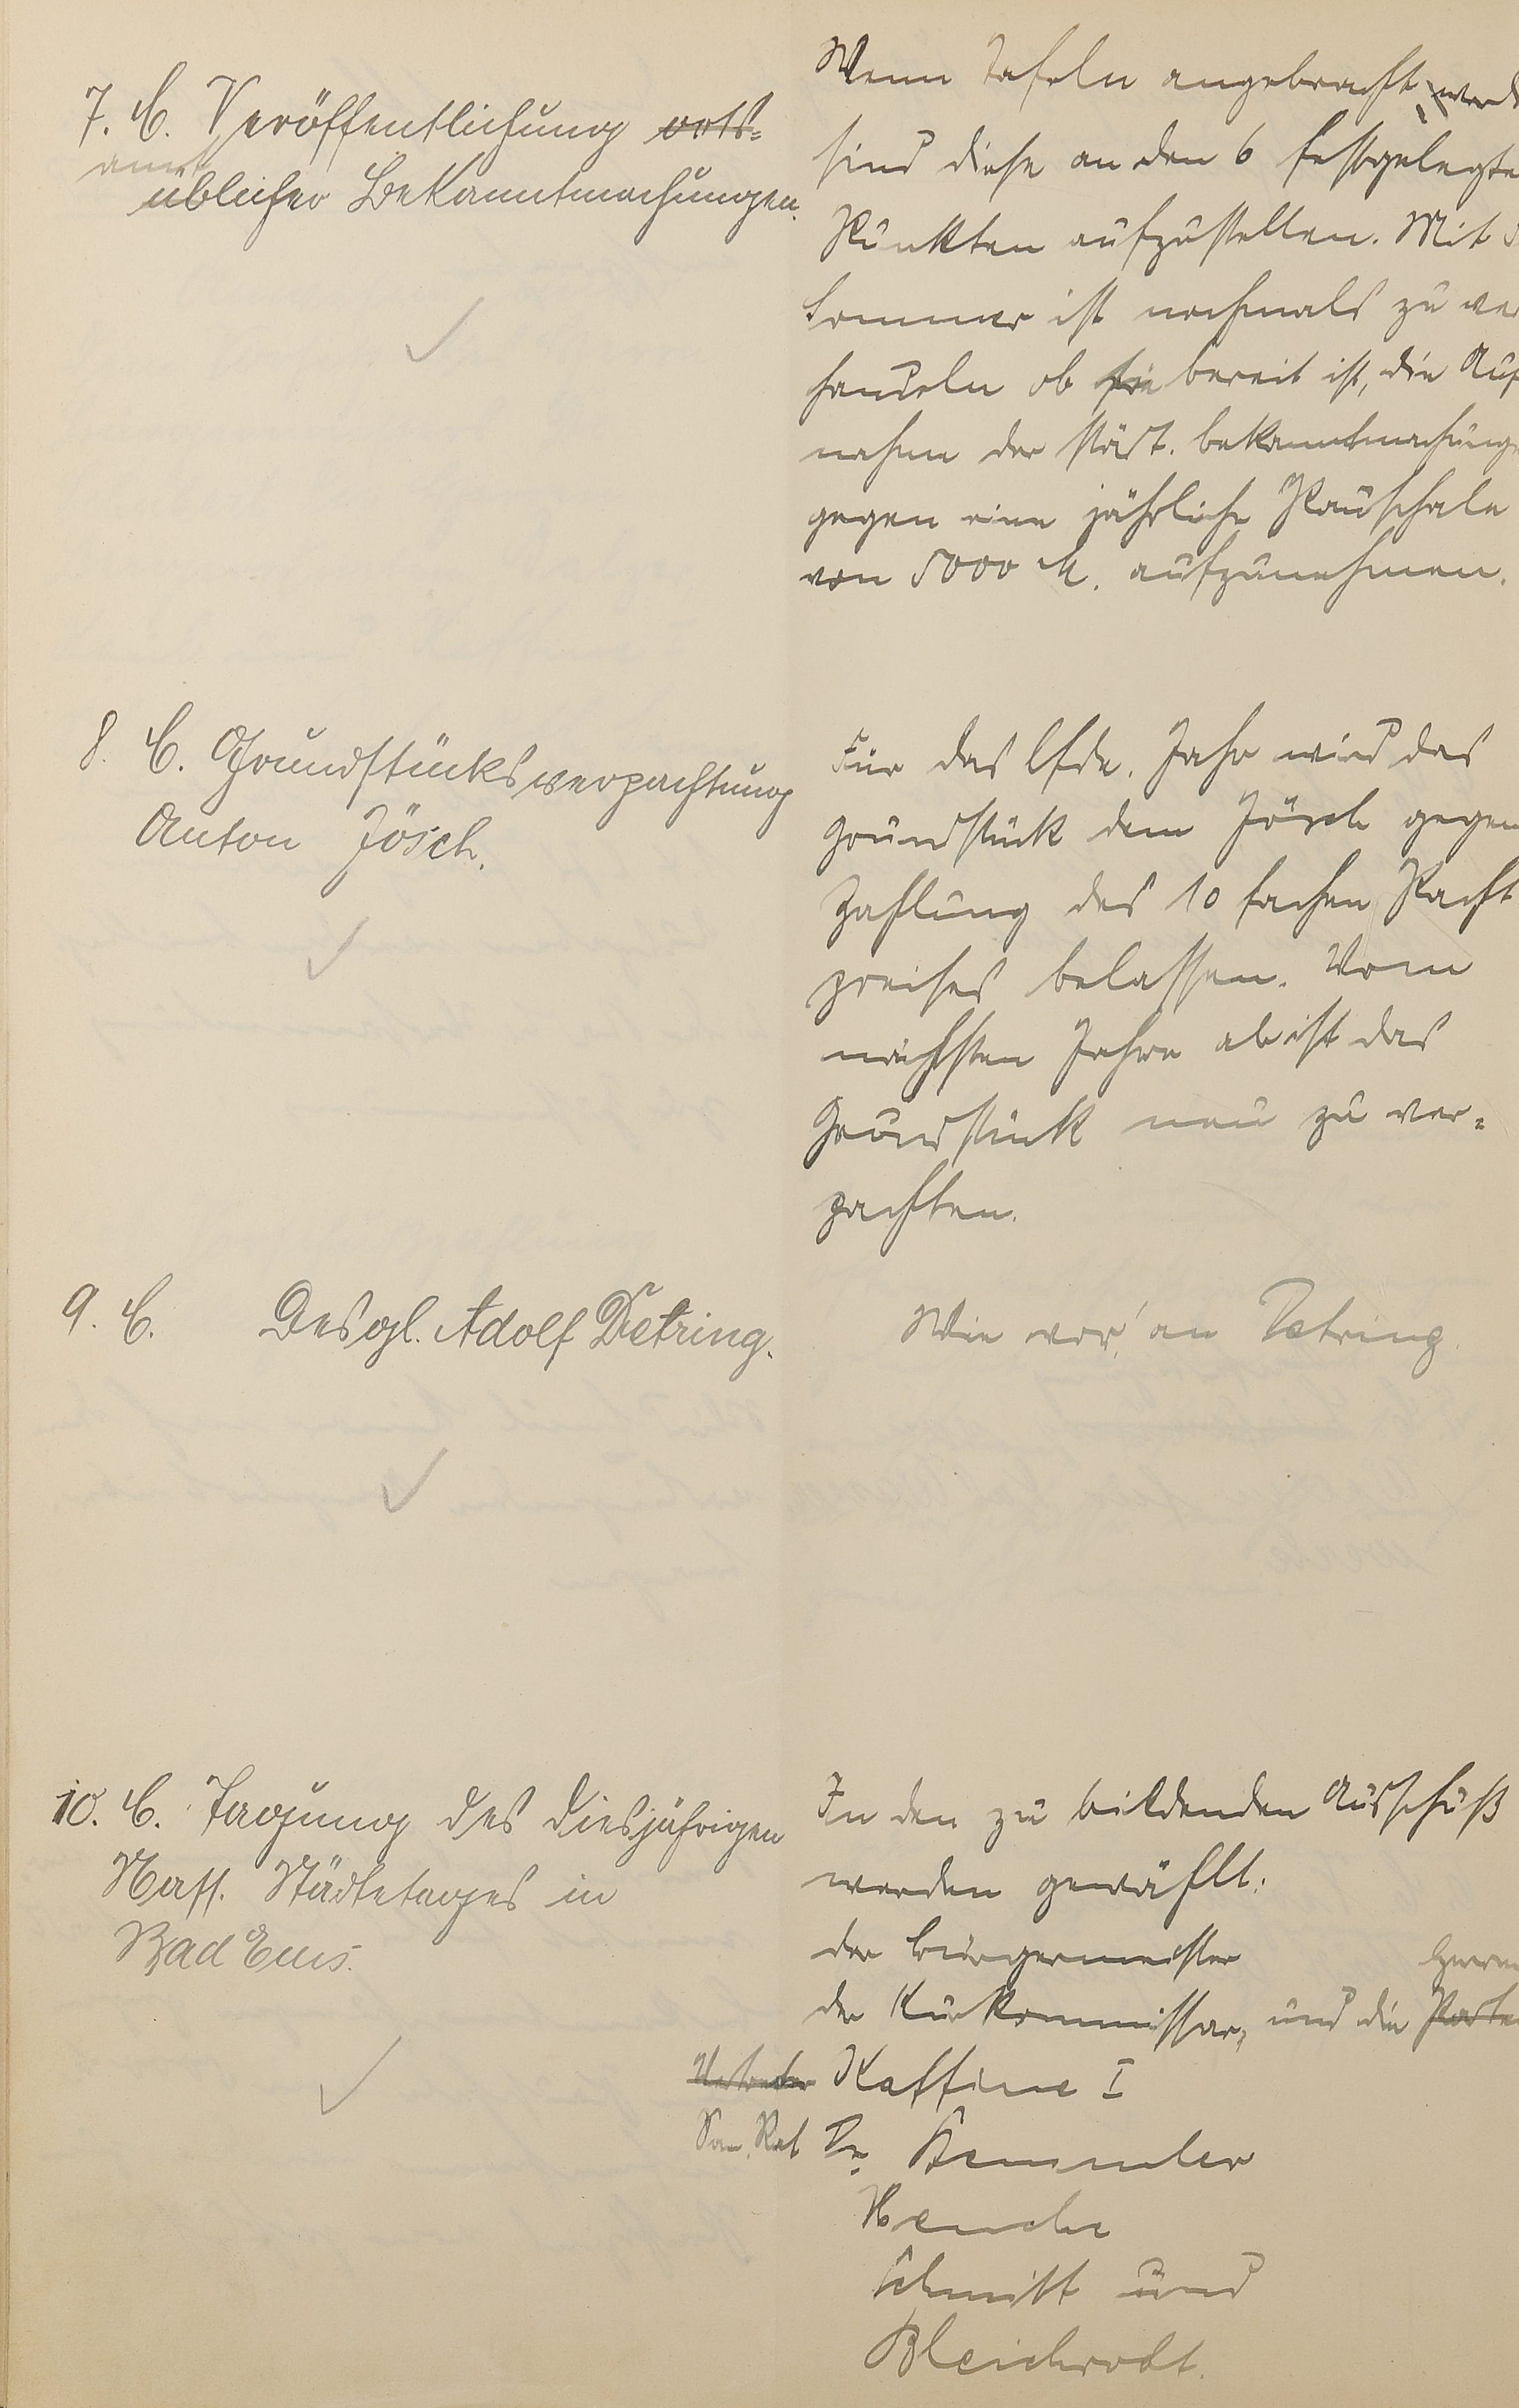 7. C. Veröffentlichung orts-
amt
üblicher Bekanntmachungen.
Wenn Tafeln angebracht werd
sind diese an den 6 festgelegte
Punkten aufzustellen. Mit
Sommer ist nochmals zu ver
handeln ob sie bereit ist, die Auf
nahme der städt. bekanntmachunge
gegen eine jährliche Pauschale
von 5000 M. aufzunehmen.
8. C. Grundstücksverpachtung
Anton Jösch.
Für das lfde. Jahr wird das
Grundstück dem Jösch gegen
Zahlung des 10 fachen Pacht
preises belassen. Vom
nächsten Jahre ab ist das
Grundstück neu zu ver-
pachten.
9. C. Desgl. Adolf Detring.
Wie vor! an Detring.
10. C. Tagung des diesjährigen
Nass. Städtetages in
Bad Ems.
In den zu bildenden Ausschuß
werden gewählt:
der Bürgermeister
Herren
der Kurkommissar, und die
Kaffine I
San. Rat Dr. Stemmler
Henche
Schmitt und
Bleichrodt.